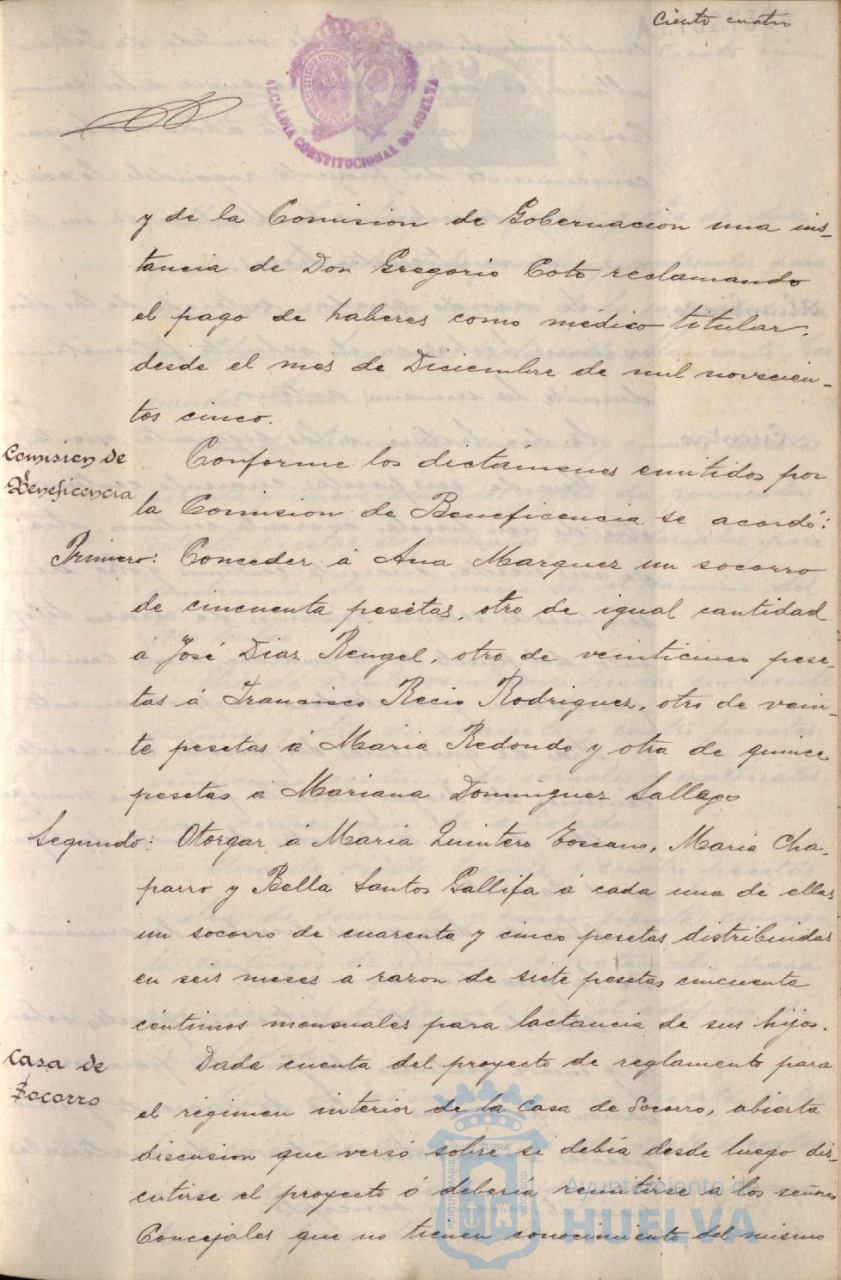 Ciento cuatro
ALCALDIA CONSTITUCIONAL DE HUELVA
y de la Comision de Gobernacion una ins-
tancia de Don Gregorio Coto reclamando
el pago de haberes como médico titular,
desde el mes de Diciembre de mil novecien-
tos cinco.
Comision de
Beneficencia
Conforme los dictámenes emitidos por
la Comision de Beneficencia se acordó:
Primero: Conceder á Ana Marquez un socorro
de cincuenta pesetas, otro de igual cantidad
á José Diaz Rengel, otro de veinticinco pese-
tas á Francisco Recio Rodriguez, otro de vein-
te pesetas á Maria Redondo y otra de quince
pesetas á Mariana Dominguez Sallago
Segundo: Otorgar á Maria Quintero Toscano, Maria Cha-
parro y Bella Santos Gallifa á cada una de ellas
un socorro de cuarenta y cinco pesetas distribuidas
en seis meses á razon de siete pesetas cincuenta
céntimos mensuales para lactancia de sus hijos.
Casa de
Socorro
Dada cuenta del proyecto de reglamento para
el régimen interior de la Casa de Socorro, abierta
discusion que versó sobre se debía desde luego dis-
cutirse el proyecto ó debería remitirse á los señores
Concejales que no tienen conocimiento del mismo
Ayuntamiento de
HUELVA